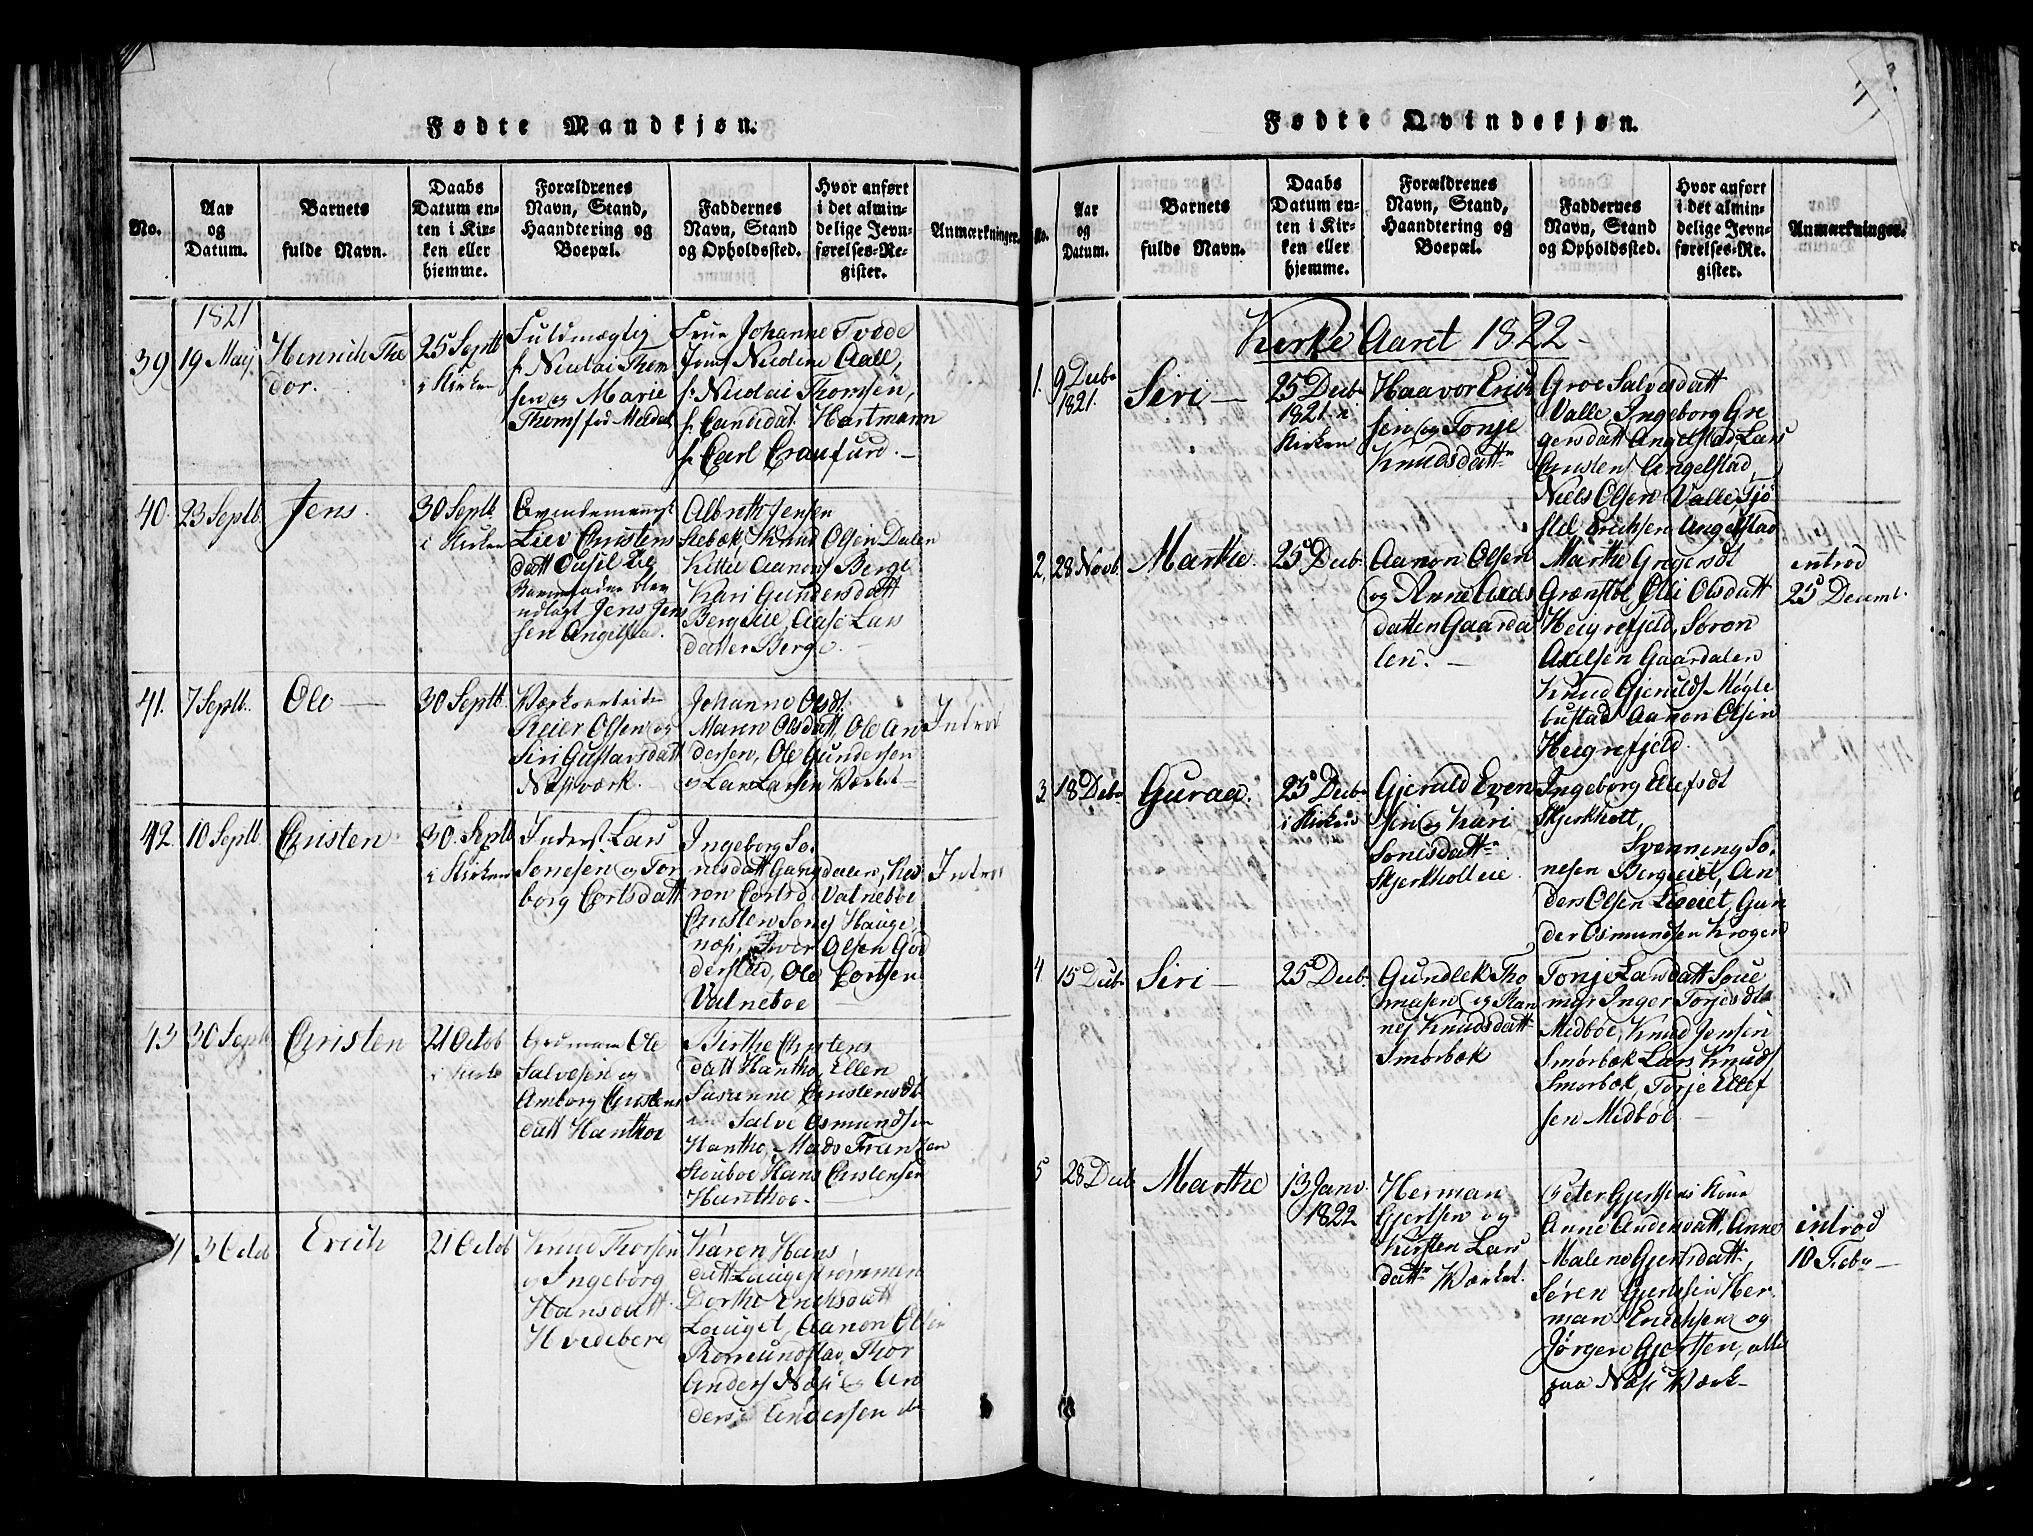 Fødte Mandkjøn.
No.
Aar
og
Datum.
Barnets
fulde Navn.
Daabs
Datum en-
ten i Kir-
ken eller
hjemme.
Forældrenes
Navn, Stand,
Haandtering og
Boepæl.
Faddernes
Navn, Stand
og Opholdssted.
Hvor anført
i det almin-
delige Jevn-
førelses-Re-
gister.
Anmærkninger.
1821
39
19 Maij
Henrich The
dor.
25 Septb
i Kirken
Fuldmægtig
hr Nicolai Thom
sen og Marie
Thoms fød Meldal
Frue Johanne Tvede
Jomf Nicoline Aall,
hr Nicolai Thomsen,
hr Candidat Hartmann
hr Carl Craufurd.
40.
23 Septb.
Jens.
30 Septb
i Kirken
Liev Christens
datt
Barnefader blev
udlagt Jens Jen
sen Angelstad.
Albreth Jensen
Knud Olsen Dalen
Kittil Aanons Berge
Kari Gundersdatt
Bergeeie, Aase Lars
datter Berge.
41.
7 Septb.
Ole
30 Septb.
Værksarbeider
Reier Olsen og
Siri Gustavsdatt
Næs værk.
Johanne Olsdt.
Maren Olsdatt, Ole An
dersen, Ole Gundersen
og Lars Larsen Værket
Introd
42.
10 Septb
Christen
30. Septb
i Kirken
Inderst Lars
Sonesen og Tor
borg Cortsdatt
Ingeborg So-
nesdatt Gangdalen,
Cortsd, Valneboe
Christen Sones Hauge
næs, Iver Olsen God
derstad, Ole Cortsen
Valneboe
Introd
43
30 Septb
Christen
21 Octob
i Kirke
Gudmand Ole
Salvesen og
Amborg Christens
datt Hanthoe
Birthe Christens
datt Hantho, Ellen
Susanne Christensdt
Salve Osmundsen
Hantho, Mads Frantzen
Stouboe Hans Christensen
Hanthoe.
3 Octob
Erich
21 Octob
Knud Thorsen
og Ingeborg
Hansdatt
Hvedeberg
Karen Hans
datt Laugestrømmen
Dorthe Erichsdatt
Lauget, Aanon Olsen
Romundstad, Thor
Anders Næs og An
ders Andersen
Fødte Qvindekjøn.
No.
Aar
og
Datum.
Barnets
fulde Navn.
Daabs
Datum en-
ten i Kir-
ken eller
hjemme.
Forældrenes
Navn, Stand,
Haandtering og
Boepæl.
Faddernes
Navn, Stand
og Opholdssted.
Hvor anført
i det almin-
delige Jevn-
førelses-Re-
gister.
Anmærkninger.
Kirke Aaret 1822
1.
9 Decb
1821.
Siri
25 Decb
1821 i
Kirken
Haavor Erich
sen og Tonje
Knudsdatt
Groe Salvesdatt
Valle, Ingeborg Gre
gersdatt Angelstad Lars
Christens Angelstad,
Niels Olsen Valle, Sjø
Erichsen Angelstad
2.
28 Novb.
Marthe.
25 Decb
Aanon Olsen
og Anne Axels
datten Gaarda
len.
Marthe Gregersdt
Grønsbl Olli Olsdatt
Heigrefjeld, Søren
Axelsen Gaardalen
Knud Gjerulds Møgle
bustad Aanon Olsen
Heigrefjeld.
introd
25 Decemb.
3
18 Decb
Guraa.
25 Decb
i Kirken
Gjeruld Even
sen og Kari
Sonesdatt
Skjerkholt eie
Ingeborg Ellefsdt
Skjerkholt,
Svenning So
nesen Bergeeiet, An
ders Olsen Lieeiet, Gun
der Osmundsen Krogen
4
15 Decb
Siri
25 Decb.
Gundlek Tho
masen og Ran
nej Knudsdatt
Smørbæk
Tonje Larsdatt Soue
myr Inger Torjesdt
Midboe, Knud Jensen
Smørbæk Lars Knuds
Smørbæk, Torje Ellef
sen Midboe.
5
28 Decb
Marthe
13 Janv.
1822
Herman
Gjertsen og
Kirsten Lars
datt Værket.
Peter Gjertsens Kone
Anne Andersdatt, Anne
Malene Gjertsdatt
Søren Gjertsen Her
man Erichsen og
Jørgen Gjertsen, alle
paa Næs Værk
introd
10 Febr